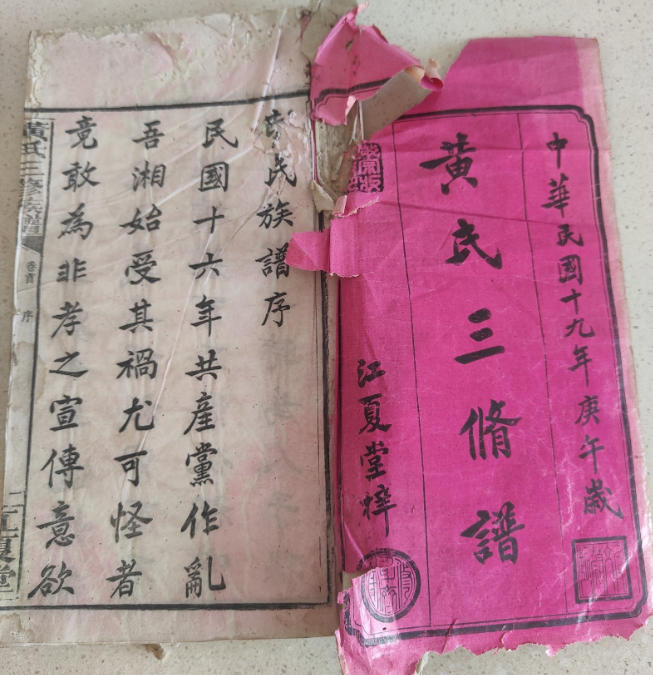 中華民國十九年庚午歲
黃氏三脩譜
江夏堂梓
氏族譜序
民國十六年共產黨作亂
吾湘始受其禍尤可怪者
竟敢為非孝之宣傳意欲
黃氏三修族譜
卷首
序
江夏堂